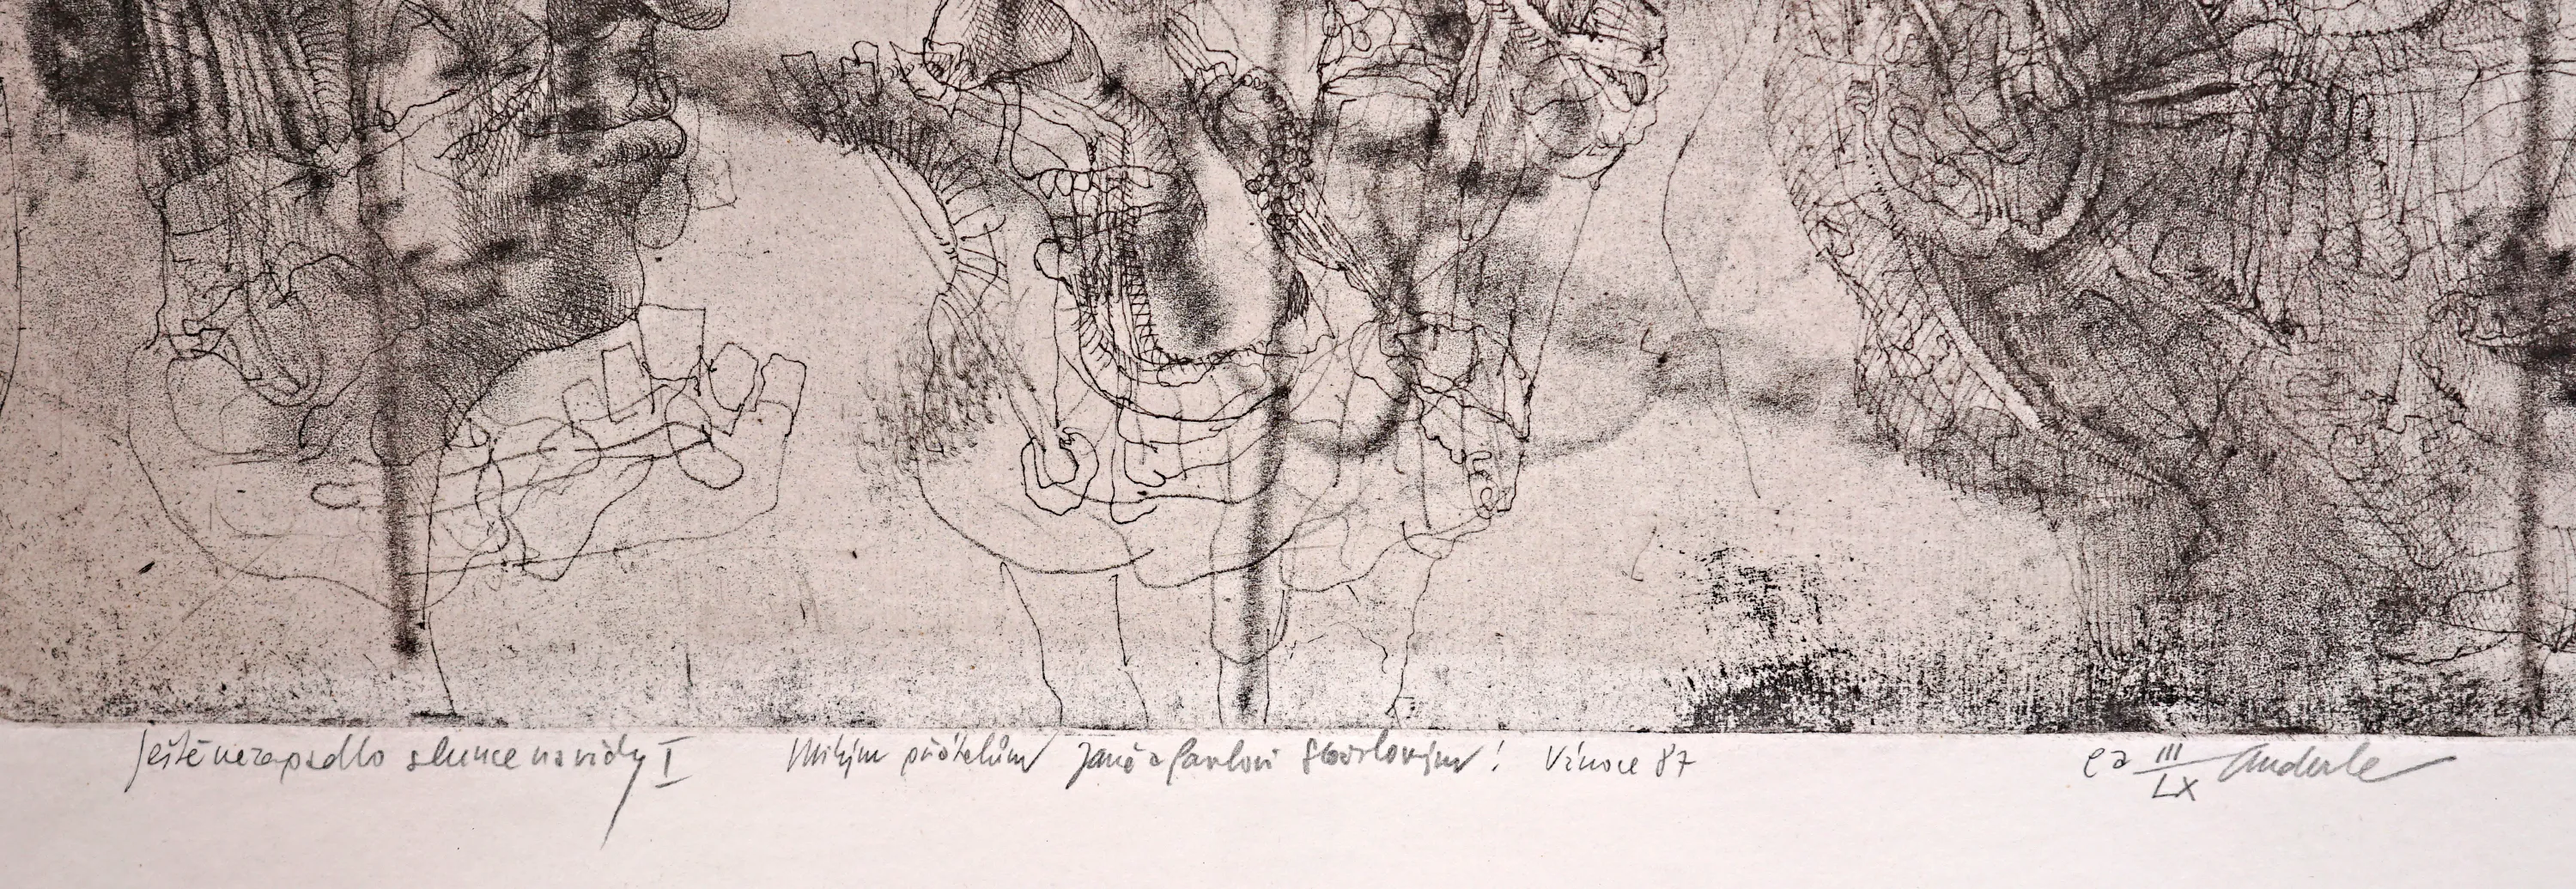 Ještě nezapadlo slunce navždy I
Milým přátelům Janě a Pavlovi ! Vánoce 87
ea III/LX Anderle